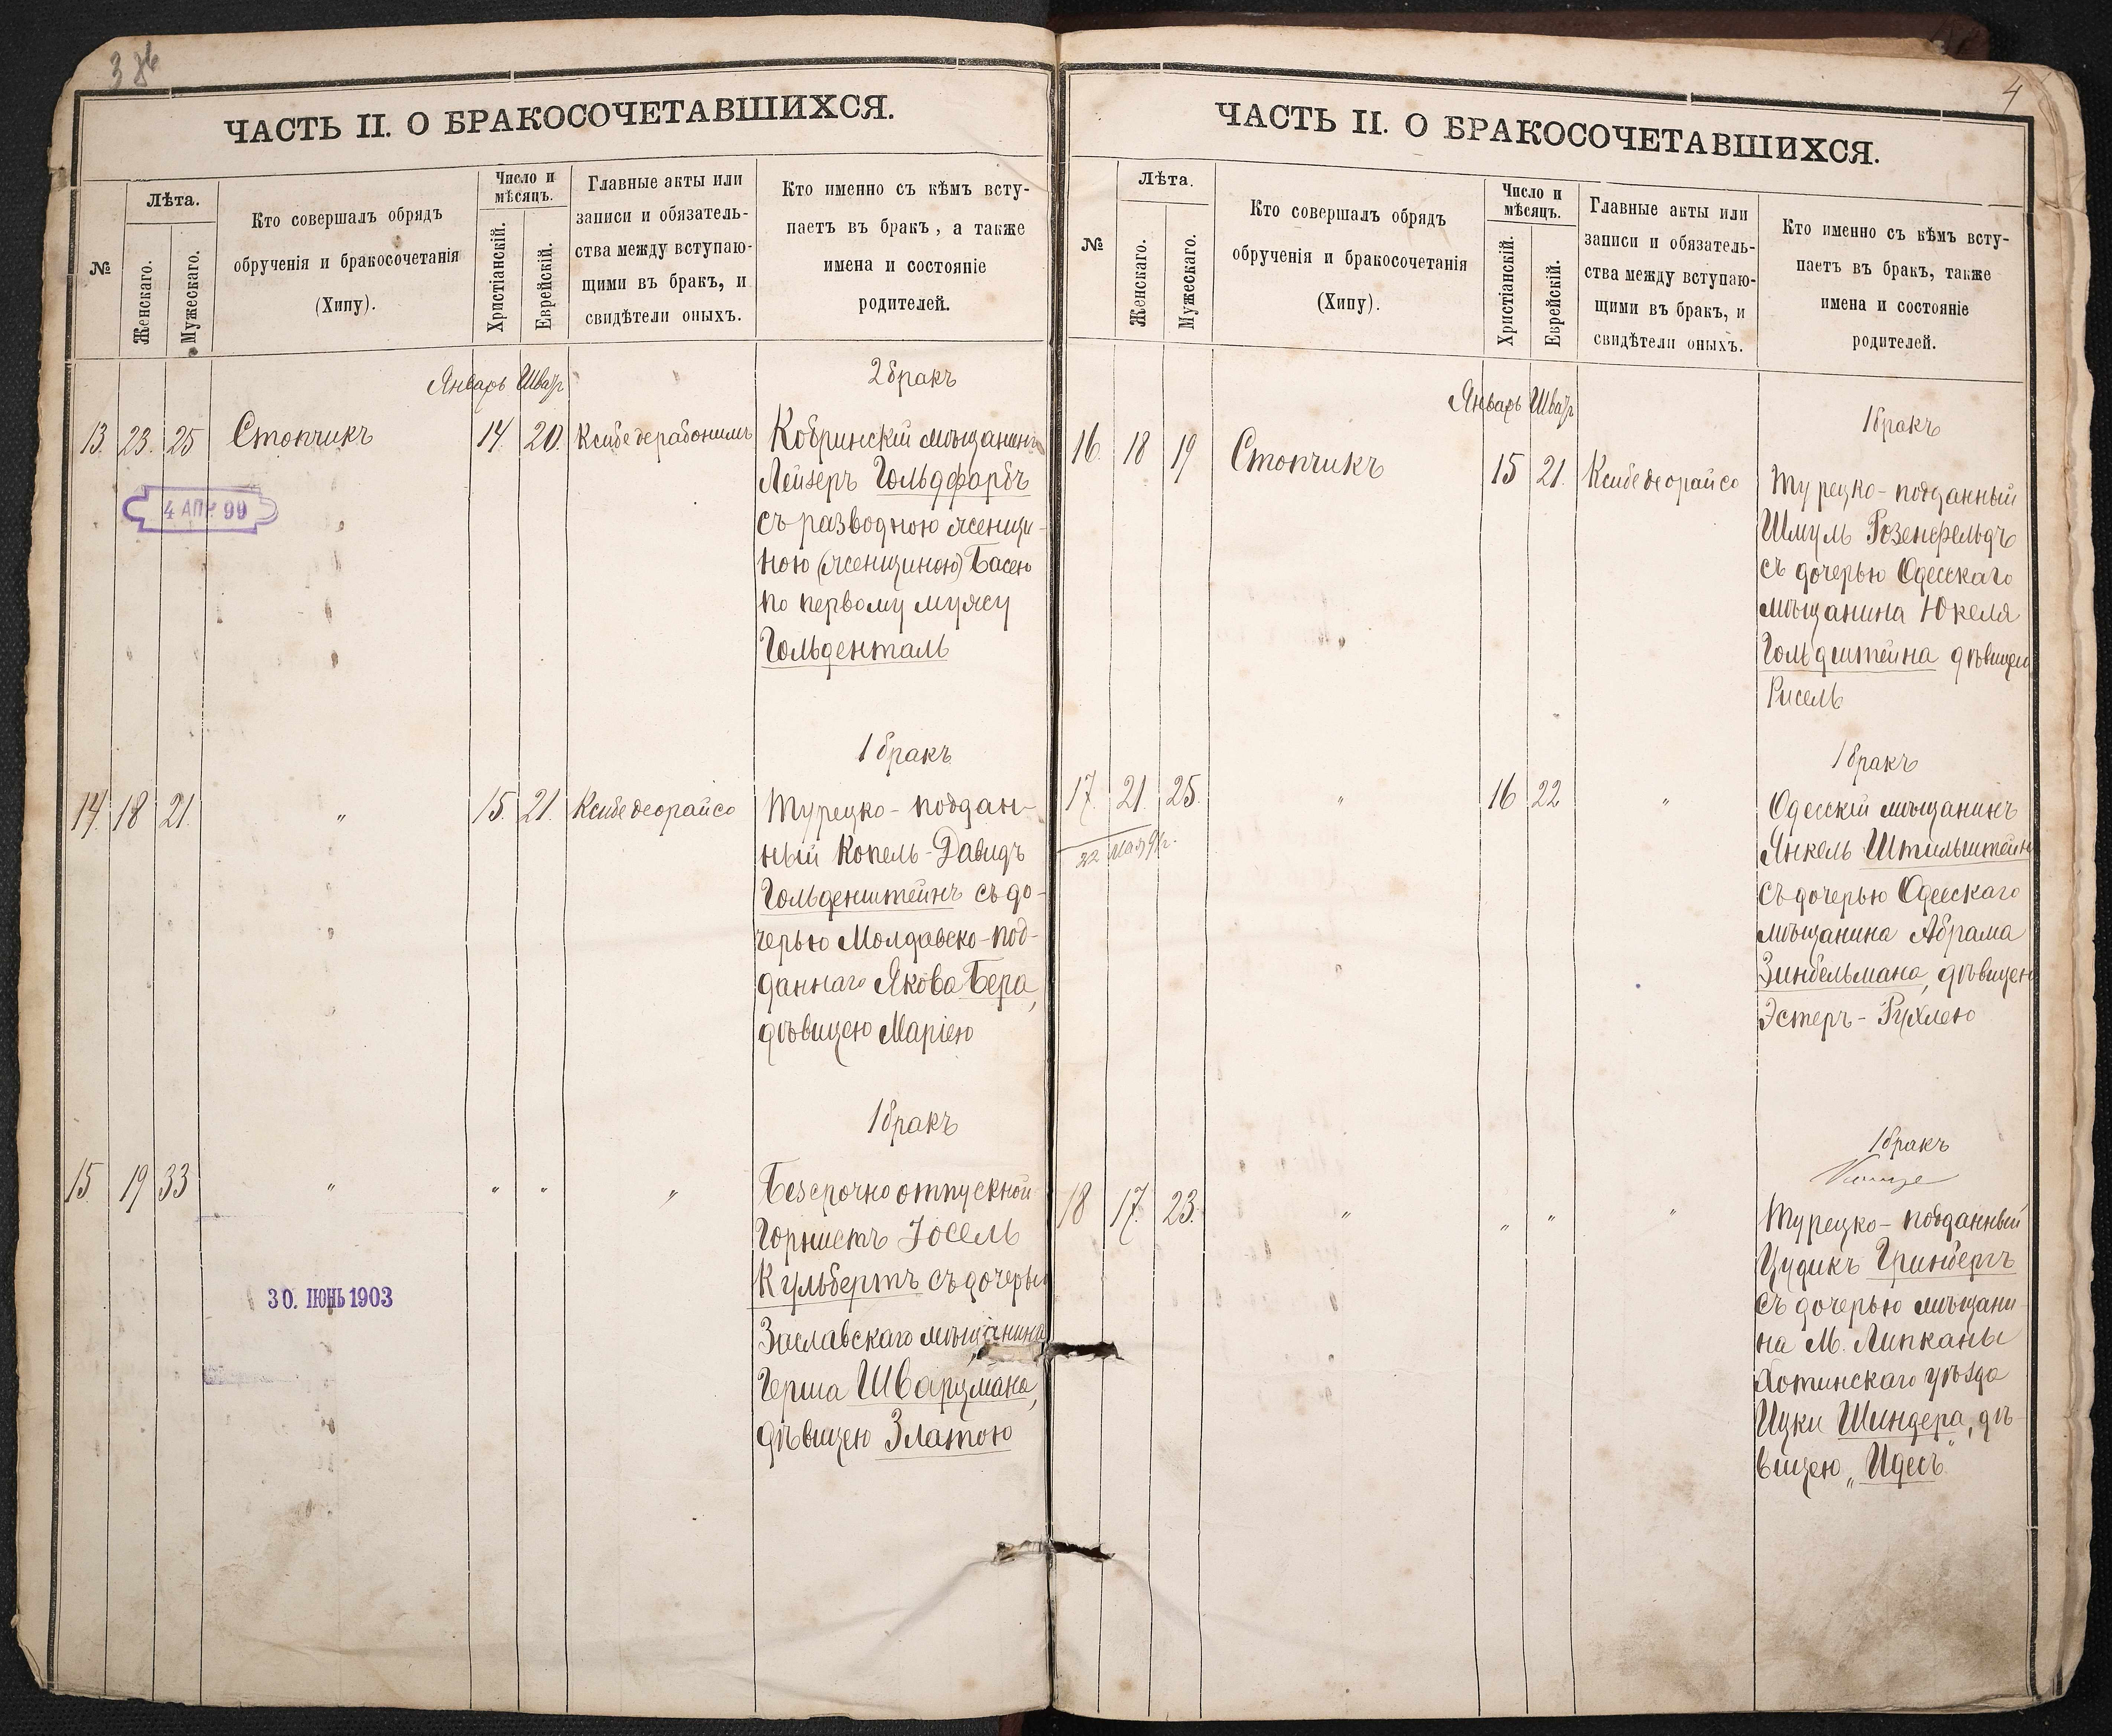 3 об
ЧАСТЬ II. О БРАКОСОЧЕТАВШИХСЯ.
№
Лѣта.
Женскаго.
Мужескаго.
Кто совершалъ обрядъ
обрученія и бракосочетанія
(Хипу).
Число и
мѣсяцъ.
Христіанскій.
Еврейскій.
Главные акты или
записи и обязатель-
ства между вступаю-
щими въ бракъ, и
свидѣтели оныхъ.
Кто именно съ кѣмъ всту-
паетъ въ бракъ, а также
имена и состояніе
родителей.
Январь Шват
2 бракъ
13. 23. 25 Стопчикъ 14. 20. Ксибе дерабонимъ Кобринскій мѣщанинъ
Лейзеръ Гольдфарбъ
съ разводною женщи-
ною (женщиною) Басею
по первому мужу
Гольденталь
4 АПР 99
1 бракъ
14. 18 21. " 15. 21. Ксибе деорайсо Турецко-поддан-
ный Копель-Давидъ
Гольденштейнъ съ до-
черью Молдавско-под-
даннаго Якова Бера,
дѣвицею Маріею
1 бракъ
15. 19 33 " " " " Безсрочно отпускной
Горнистъ Іосель
Кульбертъ съ дочерью
Заславскаго мѣщанина
Герша Шварцмана,
дѣвицею Златою
30. ІЮНЬ 1903
4
ЧАСТЬ II. О БРАКОСОЧЕТАВШИХСЯ.
№
Лѣта.
Женскаго.
Мужескаго.
Кто совершалъ обрядъ
обрученія и бракосочетанія
(Хипу).
Число и
мѣсяцъ.
Христіанскій.
Еврейскій.
Главные акты или
записи и обязатель-
ства между вступаю-
щими въ бракъ, и
свидѣтели оныхъ.
Кто именно съ кѣмъ всту-
паетъ въ бракъ, также
имена и состояніе
родителей.
Январь Шват
1 бракъ
16. 18 19 Стопчикъ 15 21. Ксибе деорайсо Турецко-подданный
Шмуль Розенфельдъ
съ дочерью Одесскаго
мѣщанина Юкеля
Гольдштейна дѣвицею
Рисель
1 бракъ
17. 21. 25. " 16 22 " Одесскій мѣщанинъ
Янкель Штильштейнъ
съ дочерью Одесскаго
мѣщанина Абрама
Зинбельмана, дѣвицею
Эстеръ-Рухлею
22 мая
1 бракъ
18 17. 23. " " " " Турецко-подданный
Цудикъ Гринбергъ
съ дочерью мѣщани
на М. Липканы
Хотинскаго уѣзда
Ицки Шиндера, дѣ-
вицею „Идесъ"